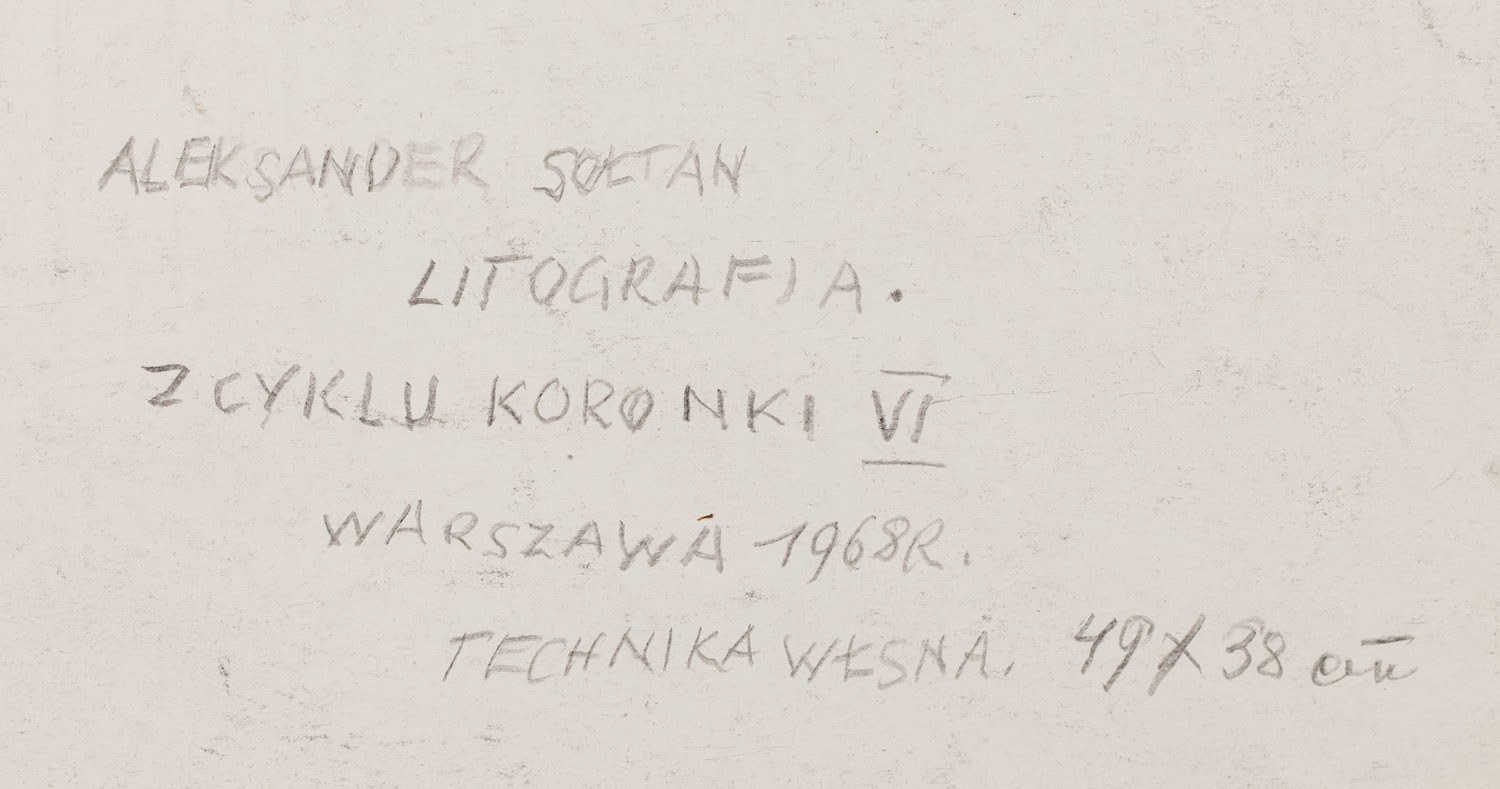 ALEKSANDER SOŁTAN
LITOGRAFIA.
Z CYKLU KORONKI VI
WARSZAWA 1968R.
TECHNIKA WŁSNA. 49 X 38 cm